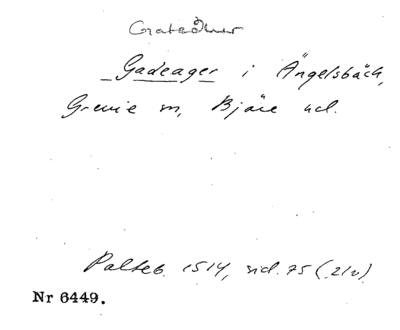 Gateåker
Gadeager i Ängelsbäck,
Grevie sn, Bjäre hd.
Palteb. 1514, sid. 75 (21v)
Nr 6449.